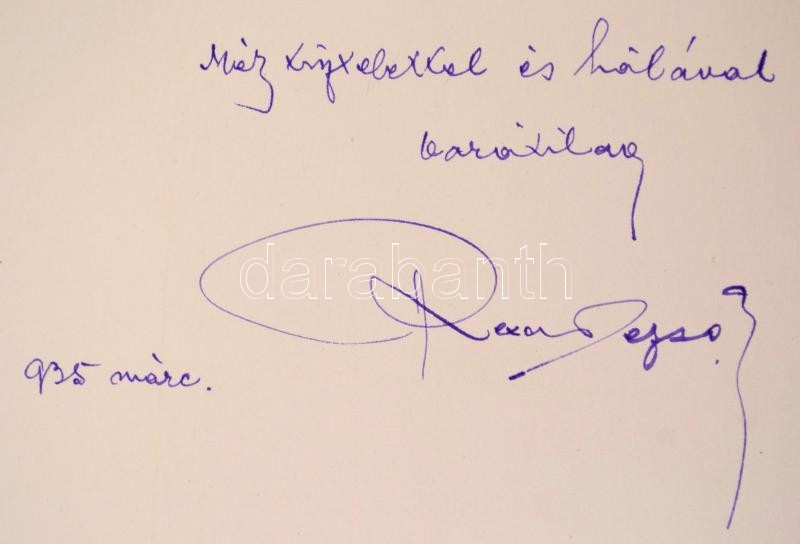 Máz tisztelettel és hálával
barátilag
darabanth
Rexa Dezső
935 márc.